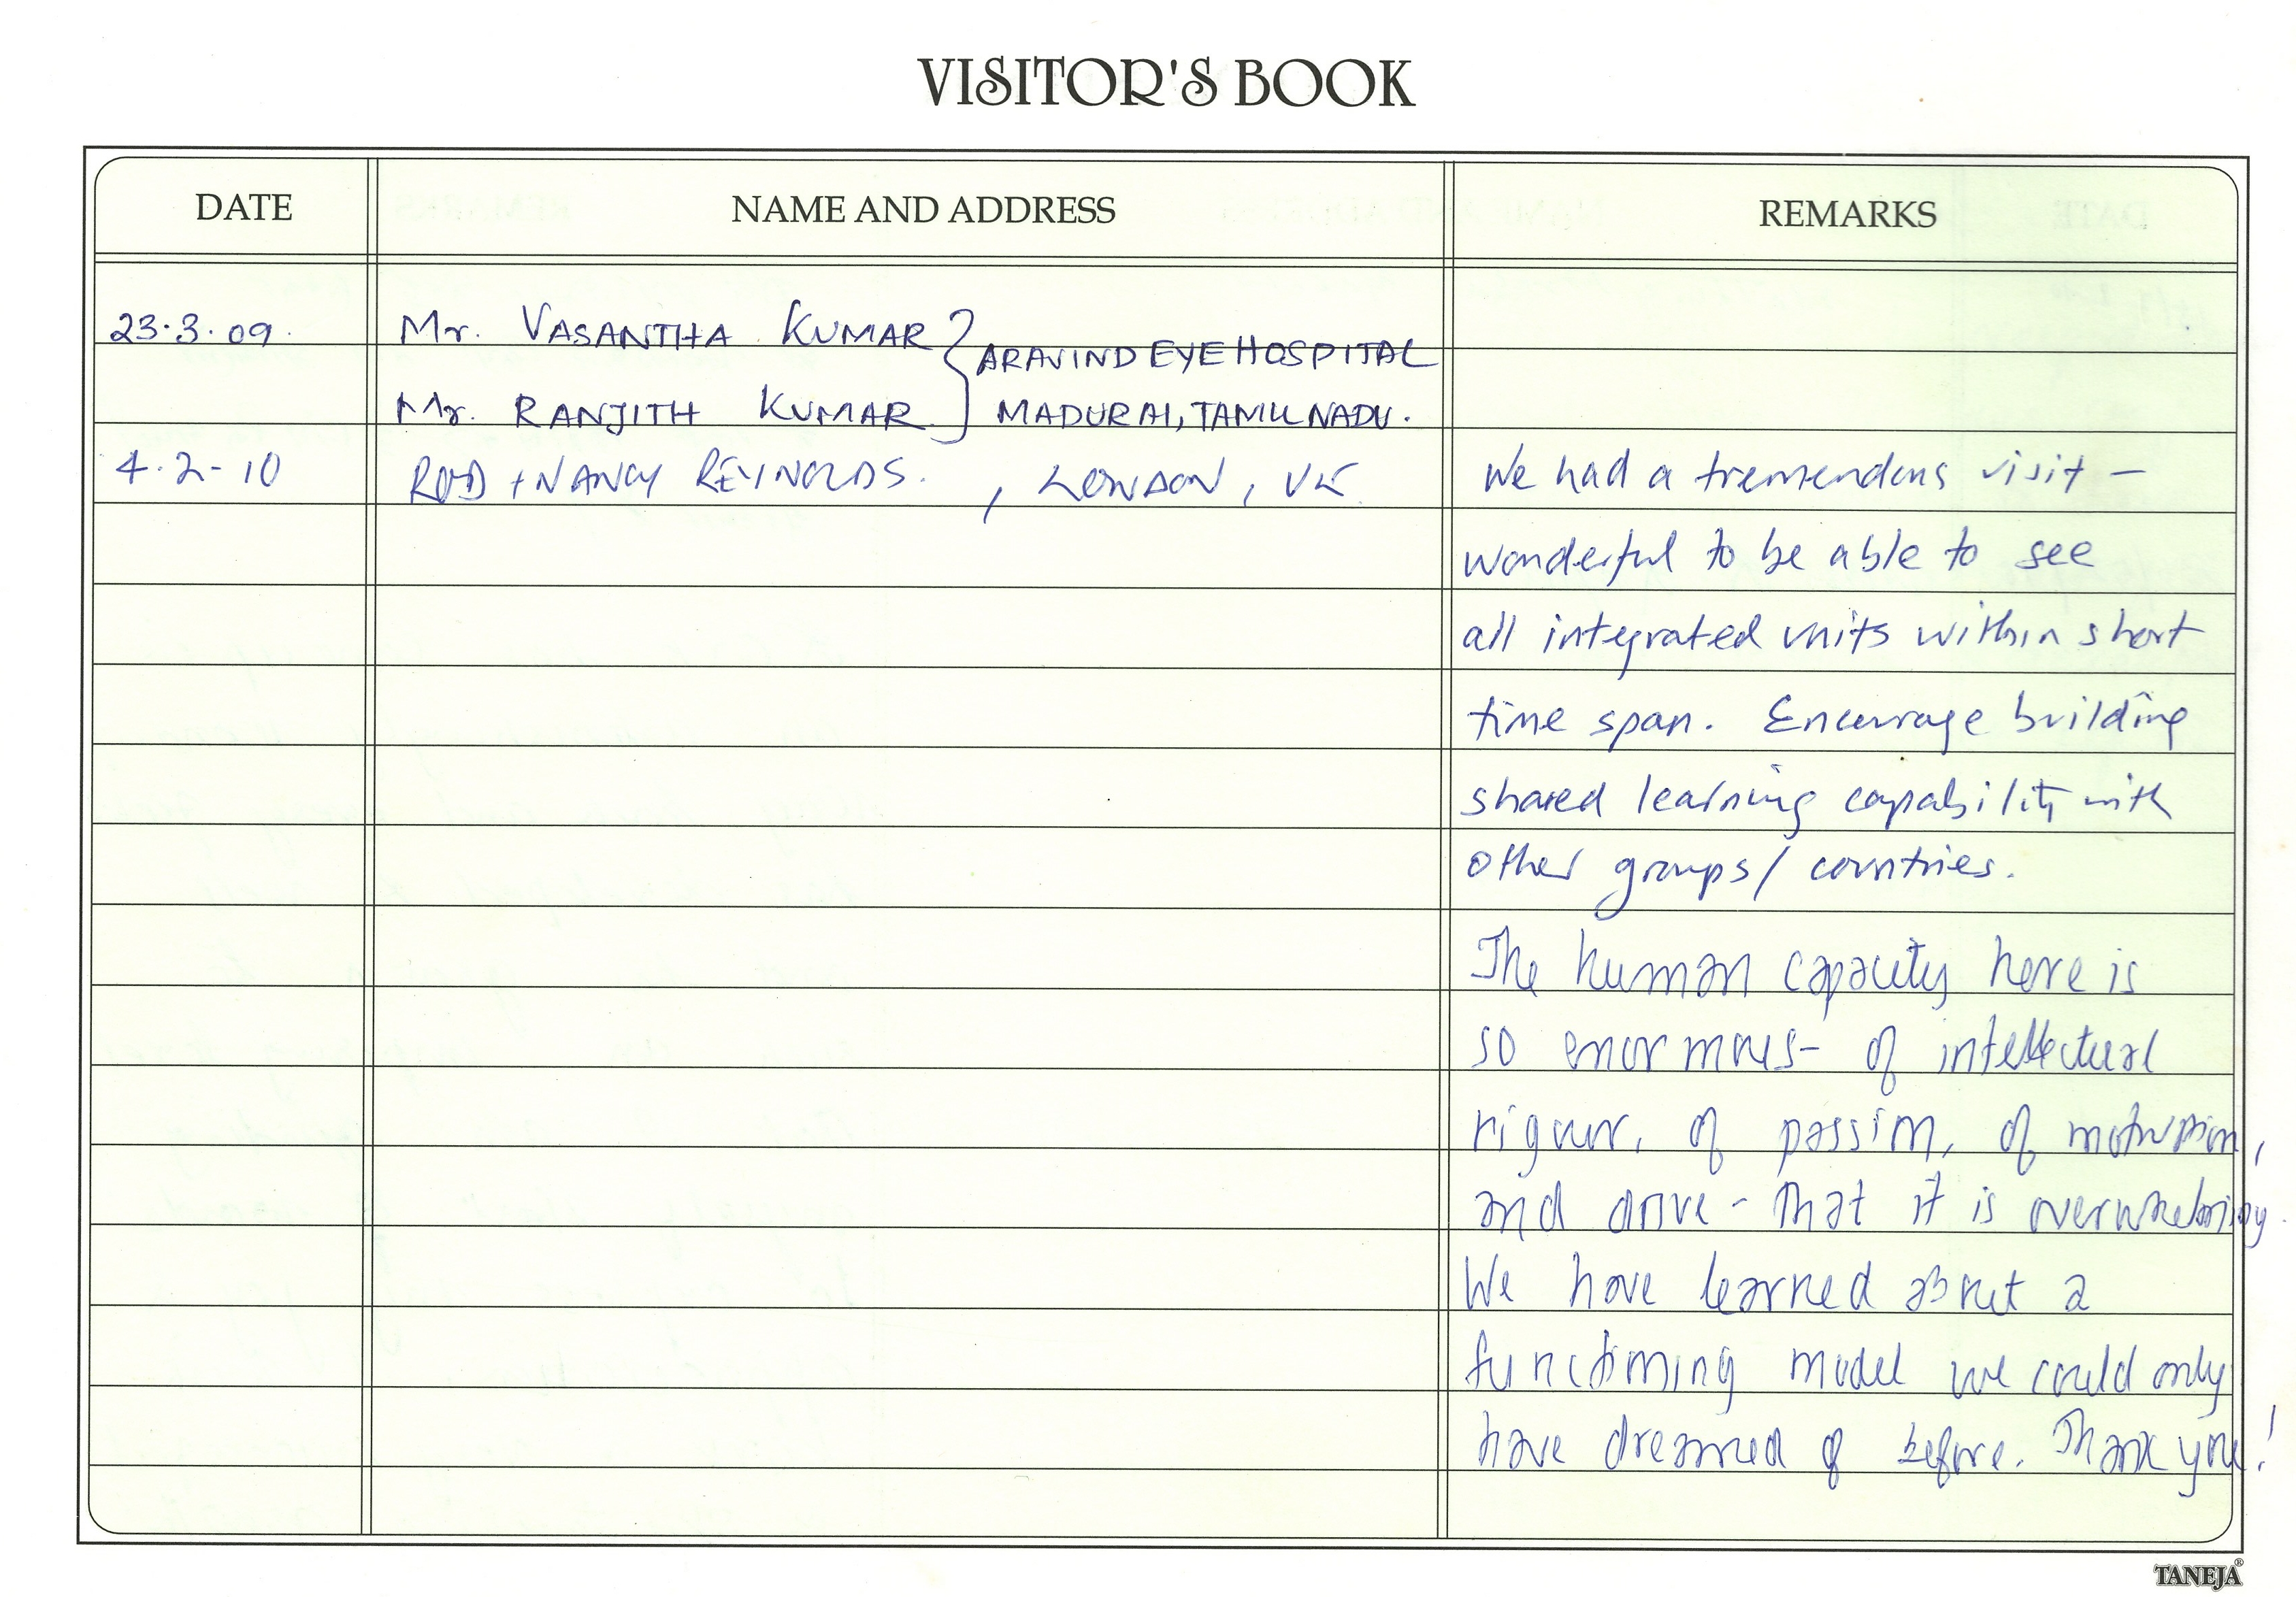 VISITOR'S BOOK
DATE NAME AND ADDRESS REMARKS
23.3.09. Mr. VASANTHA KUMAR } ARAVIND EYE HOSPITAL
Mr. RANJITH KUMAR MADURAI, TAMIL NADU.
4.2-10 ROD + NANCY REYNOLDS. , LONDON, UK We had a tremendous visit –
wonderful to be able to see
all integrated units within short
time span. Encourage building
shared learning capability with
other groups/countries.
The human capacity here is
so enormous– of intellectual
rigour, of passion, of motivation,
and drive - that it is overwhelming.
We have learned about a
functioning model we could only
have dreamed of before. Thank you!
TANEJA®